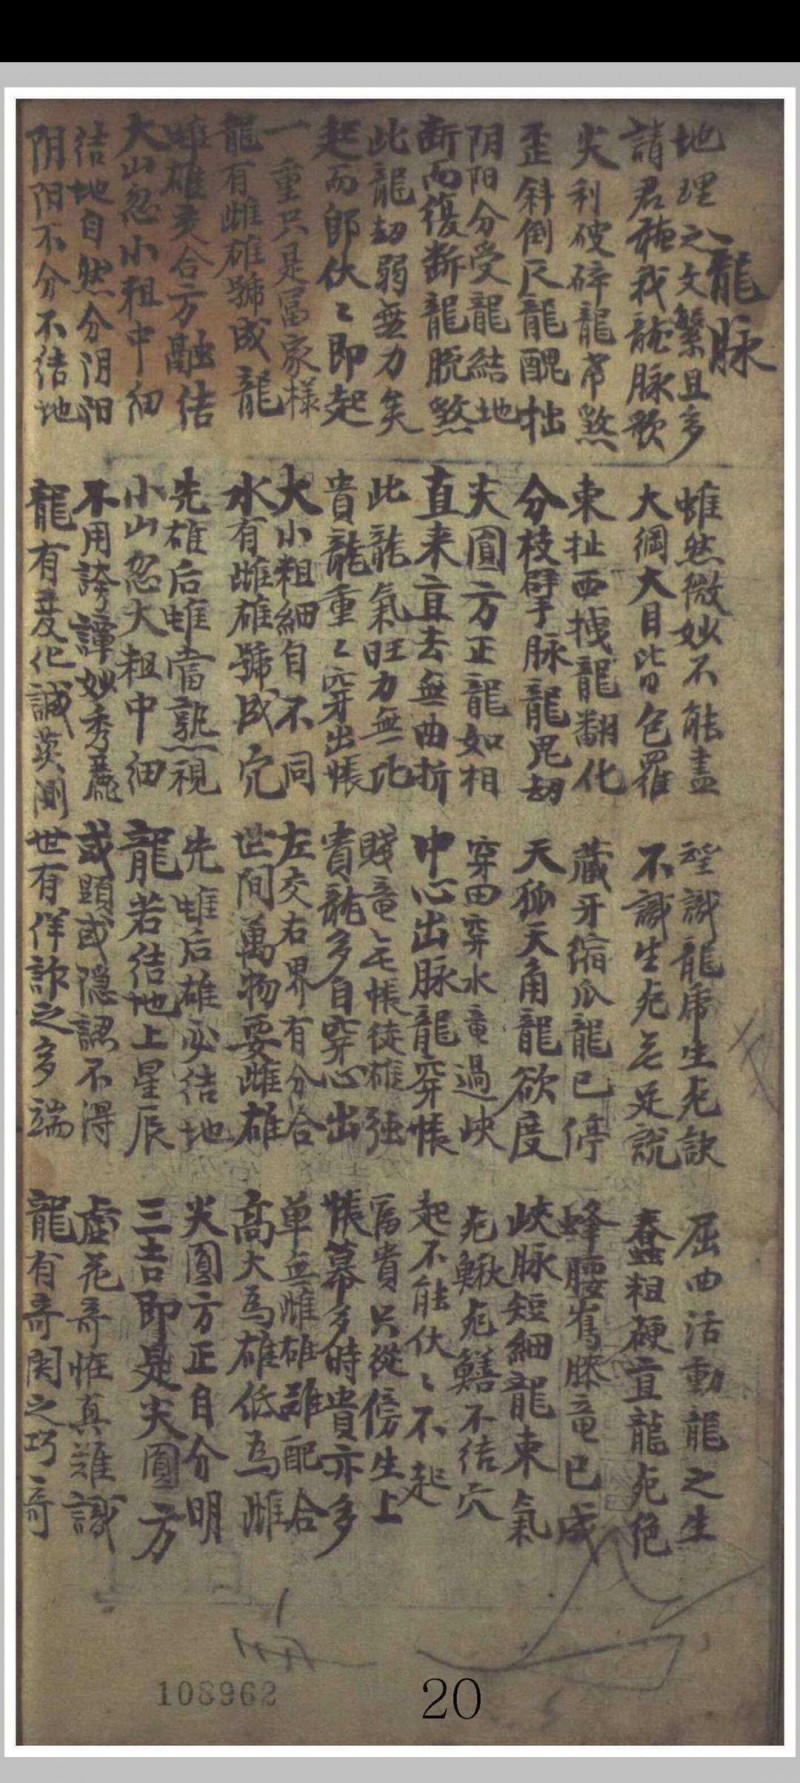 龍脉
地理之文繁且多 雖然微妙不能盡 識龍虎生死訣 屈曲活動龍之生
請君聽我龍脉歌 大綱大目皆包羅 不識生死无足說 蠢粗硬直龍死绝
尖利破碎龍帶煞 東扯西拽龍翻化 藏牙缩爪龍已停 蜂腰膝竜已成
歪斜倒仄龍醜拙 分枝劈脉龍鬼刼 天孤天角龍欲度 峽脉短细龍束氣
阴阳分受龍結地 尖圓方正龍如相 穿田穿水竜過峡 死鰍死鱔不结穴
断而復断龍脱煞 直来直去無曲折 中心出脉龍穿帳 起不能伏〻不起
此龍刼弱無力矣 此龍氣旺力無比 賤竜无帳徒雄强 富貴只從傍生上
起而即伏〻即起 貴龍重〻穿出帳 貴龍多自穿心出 帳幕多時貴亦多
一重只是富家樣 大小粗細自不同 左交右界有分合 单無雌雄誰配合
龍有雌雄號成龍 水有雌雄號成穴 世间萬物要雌雄 高大為雄低為雌
雌雄交合方融结 先雄后雌當熟視 先雌后雄必结地 尖圓方正自分明
大山忽小粗中细 小山忽大粗中细 龍若结地上星辰 三吉即是尖圓方
结地自然分阴阳 不用誇譚妙秀麗 或顕或隠認不得 虚花奇怪真難識
阴阳不分不结地 龍有变化誠莫測 世有佯詐之多端 龍有奇関之巧奇
108962
20